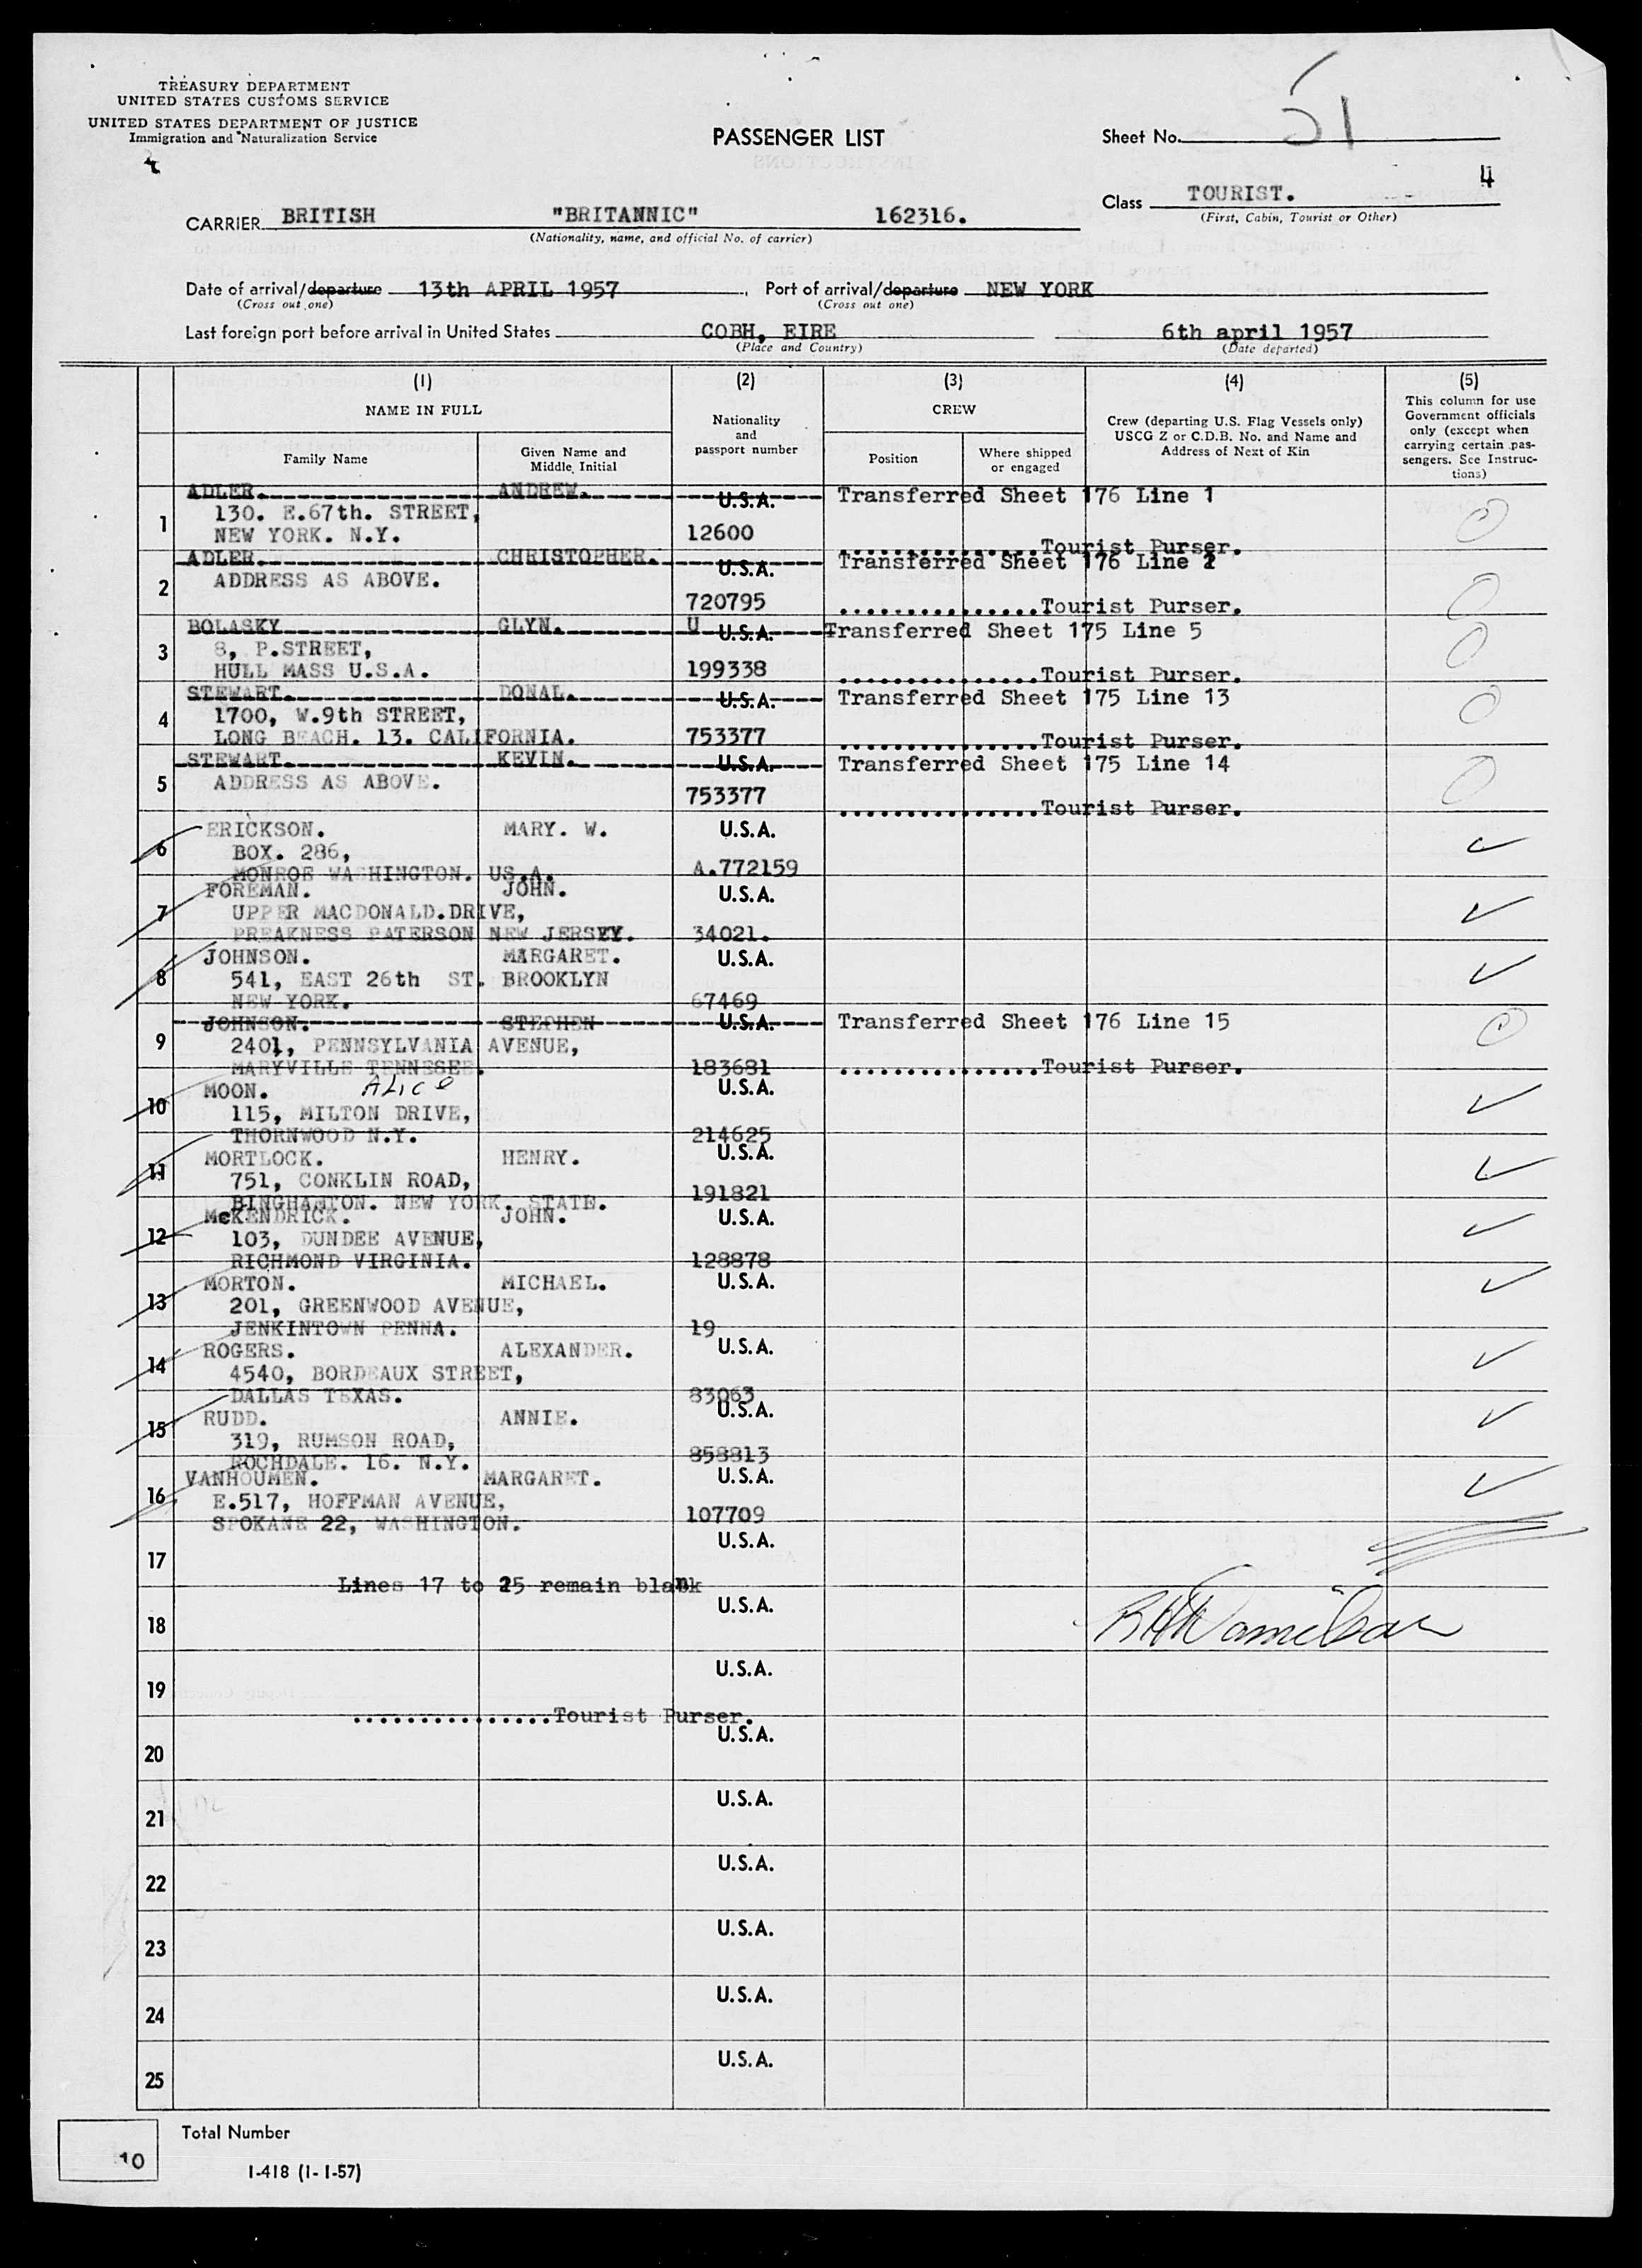 TREASURY DEPARTMENT
UNITED STATES CUSTOMS SERVICE
UNITED STATES DEPARTMENT OF JUSTICE
Immigration and Naturalization Service
PASSENGER LIST
Sheet No. 51
4
Class TOURIST.
(First, Cabin, Tourist or Other)
CARRIER BRITISH "BRITANNIC" 162316.
(Nationality, name, and official No. of carrier)
Date of arrival/departure 13th APRIL 1957 Port of arrival/departure NEW YORK
(Cross out one) (Cross out one)
Last foreign port before arrival in United States COBH, EIRE 6th april 1957
(Place and Country) (Date departed)
(1) (2) (3) (4) (5)
NAME IN FULL
Family Name
Given Name and
Middle Initial
Nationality
and
passport number
CREW
Position
Where shipped
or engaged
Crew (departing U.S. Flag Vessels only)
USCG Z or C.D.B. No. and Name and
Address of Next of Kin
This column for use
Government officials
only (except when
carrying certain pas-
sengers. See Instruc-
tions)
1 ADLER. ANDREW. U.S.A. Transferred Sheet 176 Line 1
130. E.67th. STREET,
NEW YORK. N.Y. 12600
...............Tourist Purser.
2 ADLER. CHRISTOPHER. U.S.A. Transferred Sheet 176 Line 2
ADDRESS AS ABOVE.
720795 ...............Tourist Purser.
3 BOLASKY GLYN. U U.S.A. Transferred Sheet 175 Line 5
8, P.STREET,
HULL MASS U.S.A. 199338 ...............Tourist Purser.
4 STEWART. DONAL. U.S.A. Transferred Sheet 175 Line 13
1700, W.9th STREET,
LONG BEACH. 13. CALIFORNIA. 753377 ...............Tourist Purser.
5 STEWART. KEVIN. U.S.A. Transferred Sheet 175 Line 14
ADDRESS AS ABOVE.
753377 ...............Tourist Purser.
6 ERICKSON. MARY. W. U.S.A.
BOX. 286,
MONROE WASHINGTON. US.A. A.772159
7 FOREMAN. JOHN. U.S.A.
UPPER MACDONALD.DRIVE,
PREAKNESS PATERSON NEW JERSEY. 34021.
8 JOHNSON. MARGARET. U.S.A.
541, EAST 26th ST. BROOKLYN
NEW YORK. 67469
9 JOHNSON. STEPHEN U.S.A. Transferred Sheet 176 Line 15
2401, PENNSYLVANIA AVENUE,
MARYVILLE TENNESEE. 183681 ...............Tourist Purser.
10 MOON. ALICE U.S.A.
115, MILTON DRIVE,
THORNWOOD N.Y. 214625
11 MORTLOCK. HENRY. U.S.A.
751, CONKLIN ROAD,
BINGHAMTON. NEW YORK. STATE. 191821
12 McKENDRICK. JOHN. U.S.A.
103, DUNDEE AVENUE,
RICHMOND VIRGINIA. 128878
13 MORTON. MICHAEL. U.S.A.
201, GREENWOOD AVENUE,
JENKINTOWN PENNA. 19
14 ROGERS. ALEXANDER. U.S.A.
4540, BORDEAUX STREET,
DALLAS TEXAS. 83063
15 RUDD. ANNIE. U.S.A.
319, RUMSON ROAD,
ROCHDALE. 16. N.Y. 858813
16 VANHOUMEN. MARGARET. U.S.A.
E.517, HOFFMAN AVENUE,
SPOKANE 22, WASHINGTON. 107709
17 U.S.A.
Lines 17 to 25 remain blank
18 U.S.A.
19 U.S.A.
...............Tourist Purser.
20 U.S.A.
21 U.S.A.
22 U.S.A.
23 U.S.A.
24 U.S.A.
25 U.S.A.
10 Total Number
I-418 (1-1-57)